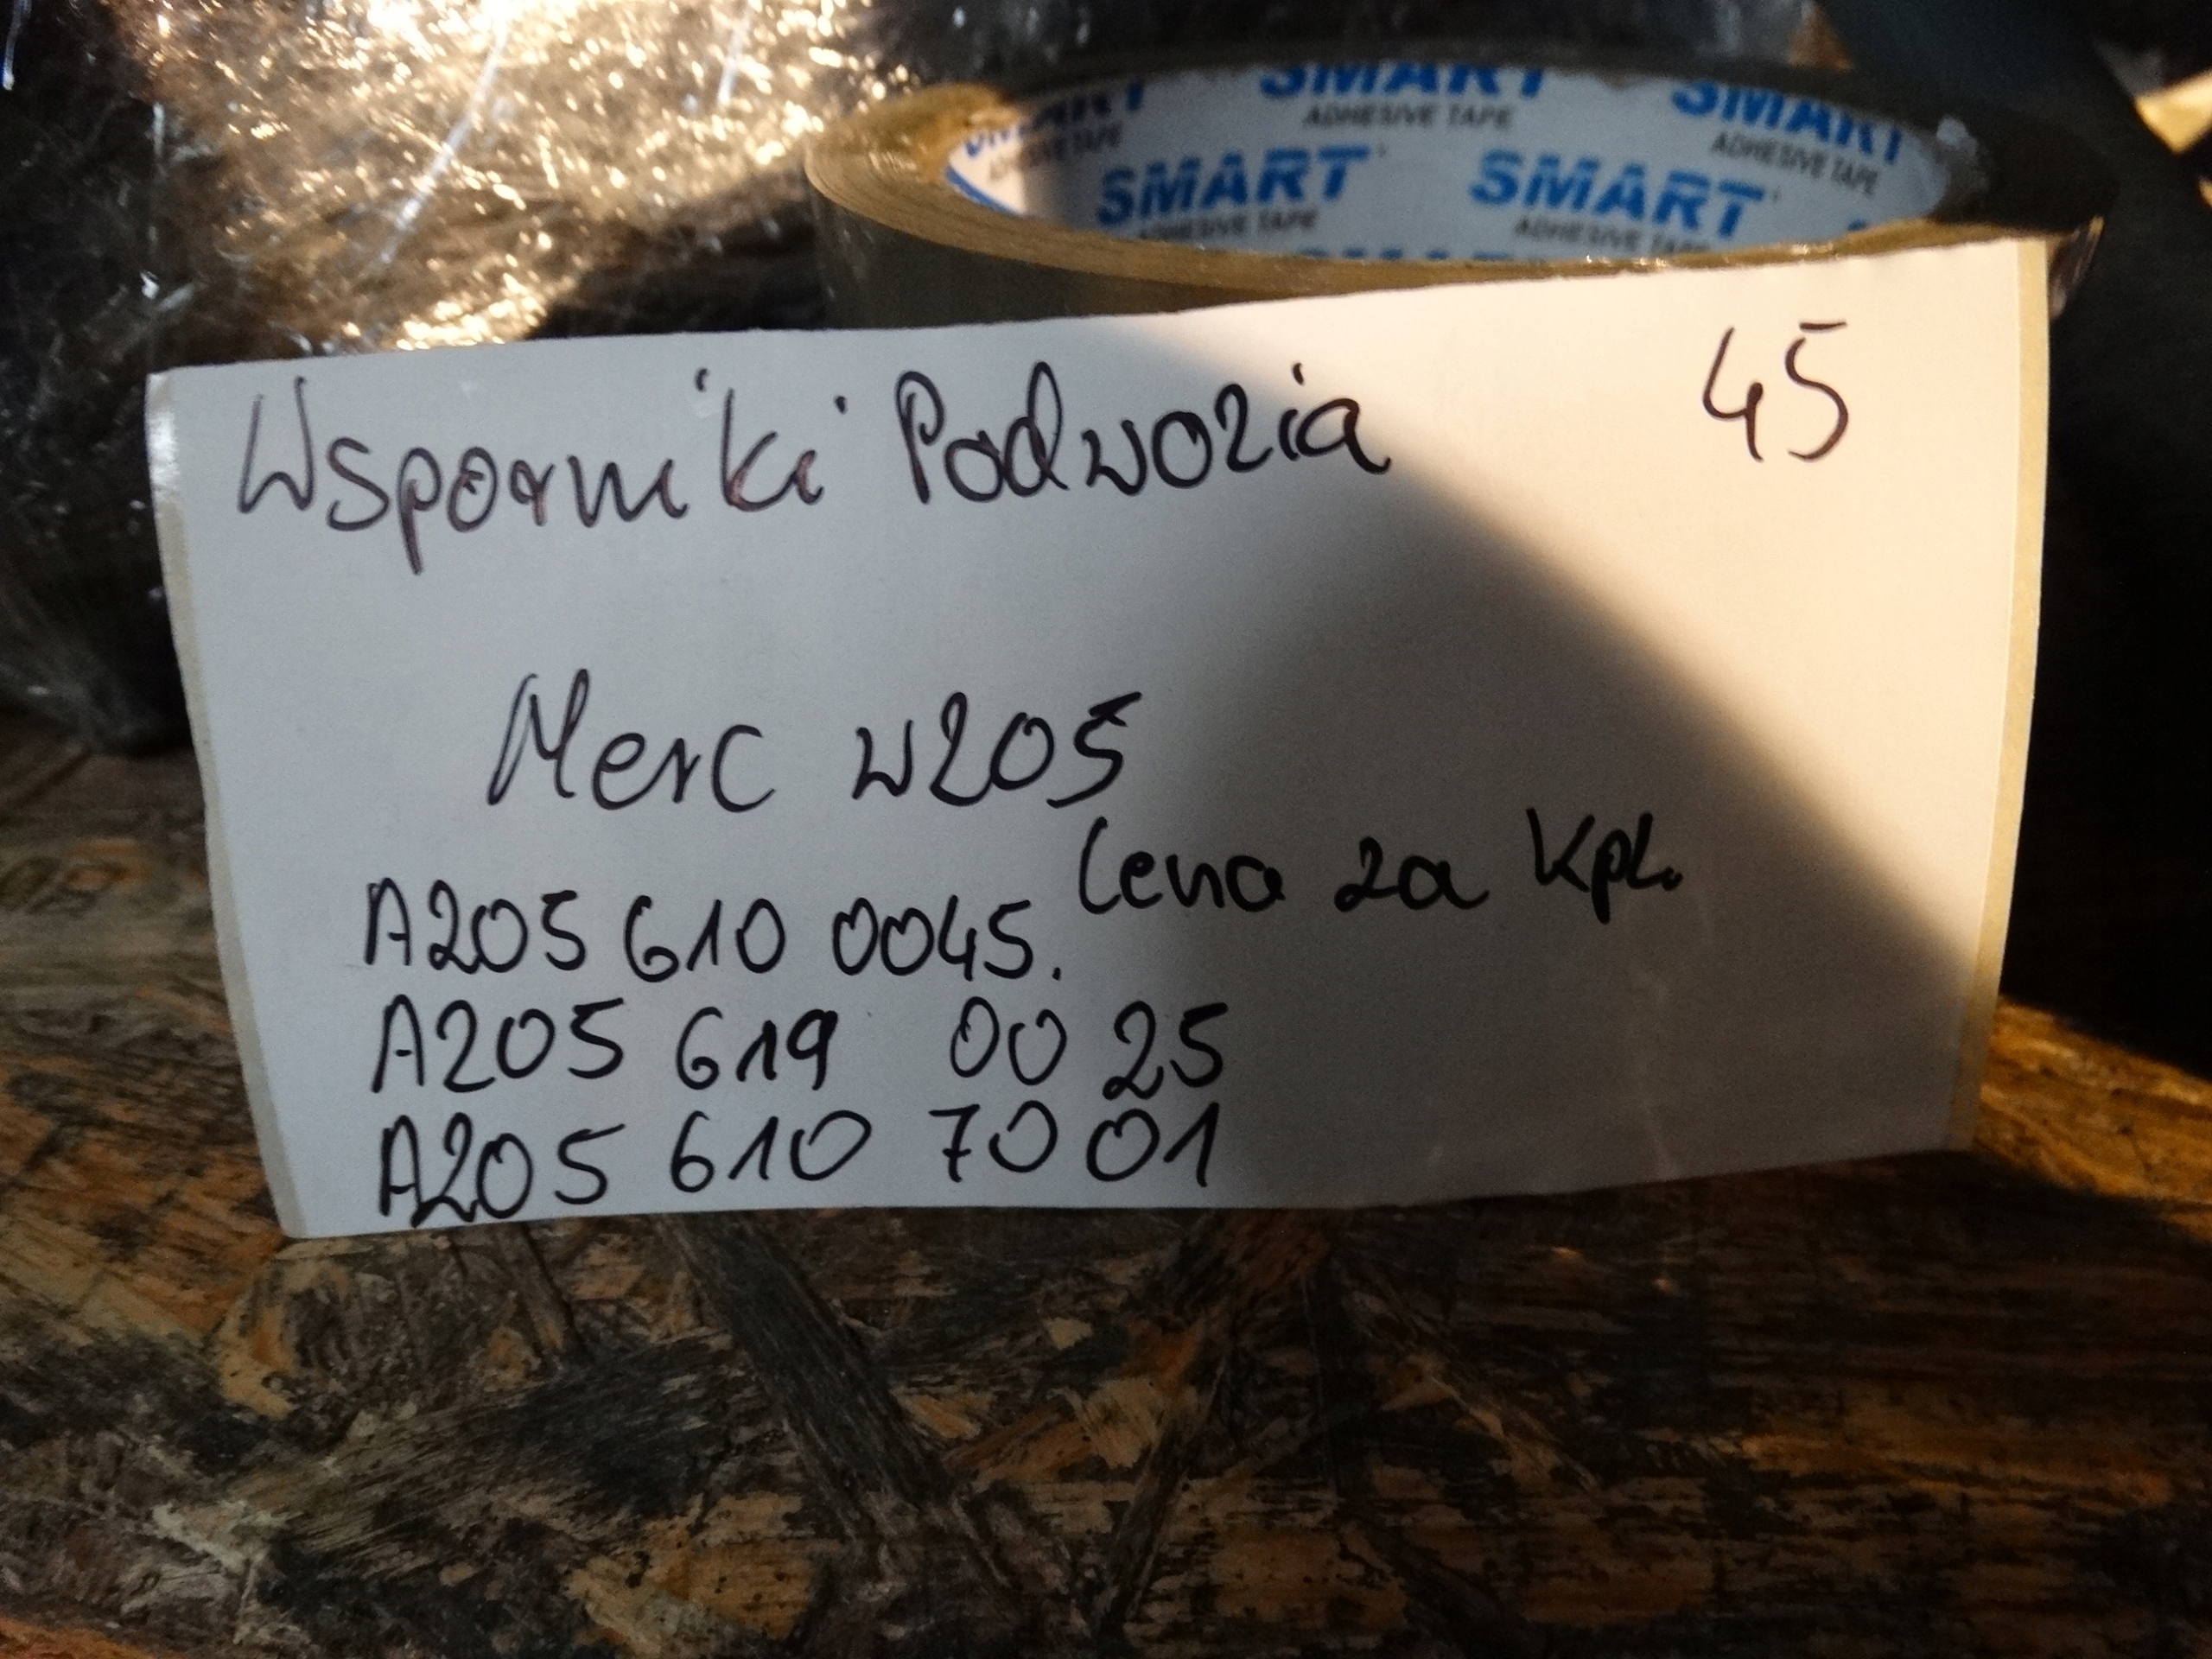 SMART SMART SMART
ADHESIVE TAPE ADHESIVE TAPE ADHESIVE TAPE
SMART SMART
ADHESIVE TAPE ADHESIVE TAPE
Wsporniki Podwozia 45
Merc W205
Cena za kpl.
A205 610 0045.
A205 619 00 25
A205 610 70 01